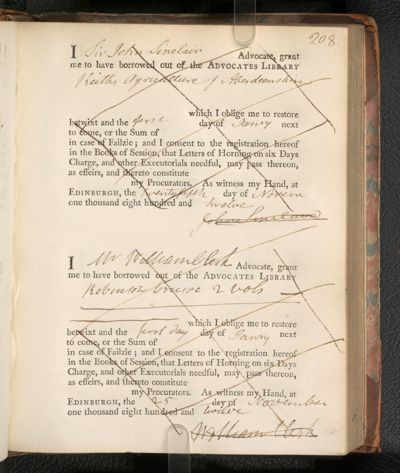 208.
I Sir John Sinclair Advocate, grant
me to have borrowed out of the ADVOCATES LIBRARY
Keiths Agriculture of Aberdeenshire
which I oblige me to restore
betwixt and the first day of Janry next
to come, or the Sum of
in case of Failzie; and I consent to the registration hereof
in the Books of Session, that Letters of Horning on six Days
Charge, and other Executorials needful, may pass thereon,
as effeirs, and thereto constitute
my Procurators. As witness my Hand, at
EDINBURGH, the day of Novem
one thousand eight hundred and twelve
John Sinclair
I Mr William Clerk Advocate, grant
me to have borrowed out of the ADVOCATES LIBRARY
Robinson Crusoe 2 vols
which I oblige me to restore
betwixt and the first day day of Janry next
to come, or the Sum of
in case of Failzie; and I consent to the registration hereof
in the Books of Session, that Letters of Horning on six Days
Charge, and other Executorials needful, may pass thereon,
as effeirs, and thereto constitute
my Procurators. As witness my Hand, at
EDINBURGH, the 25 day of November
one thousand eight hundred and twelve
William Clerk